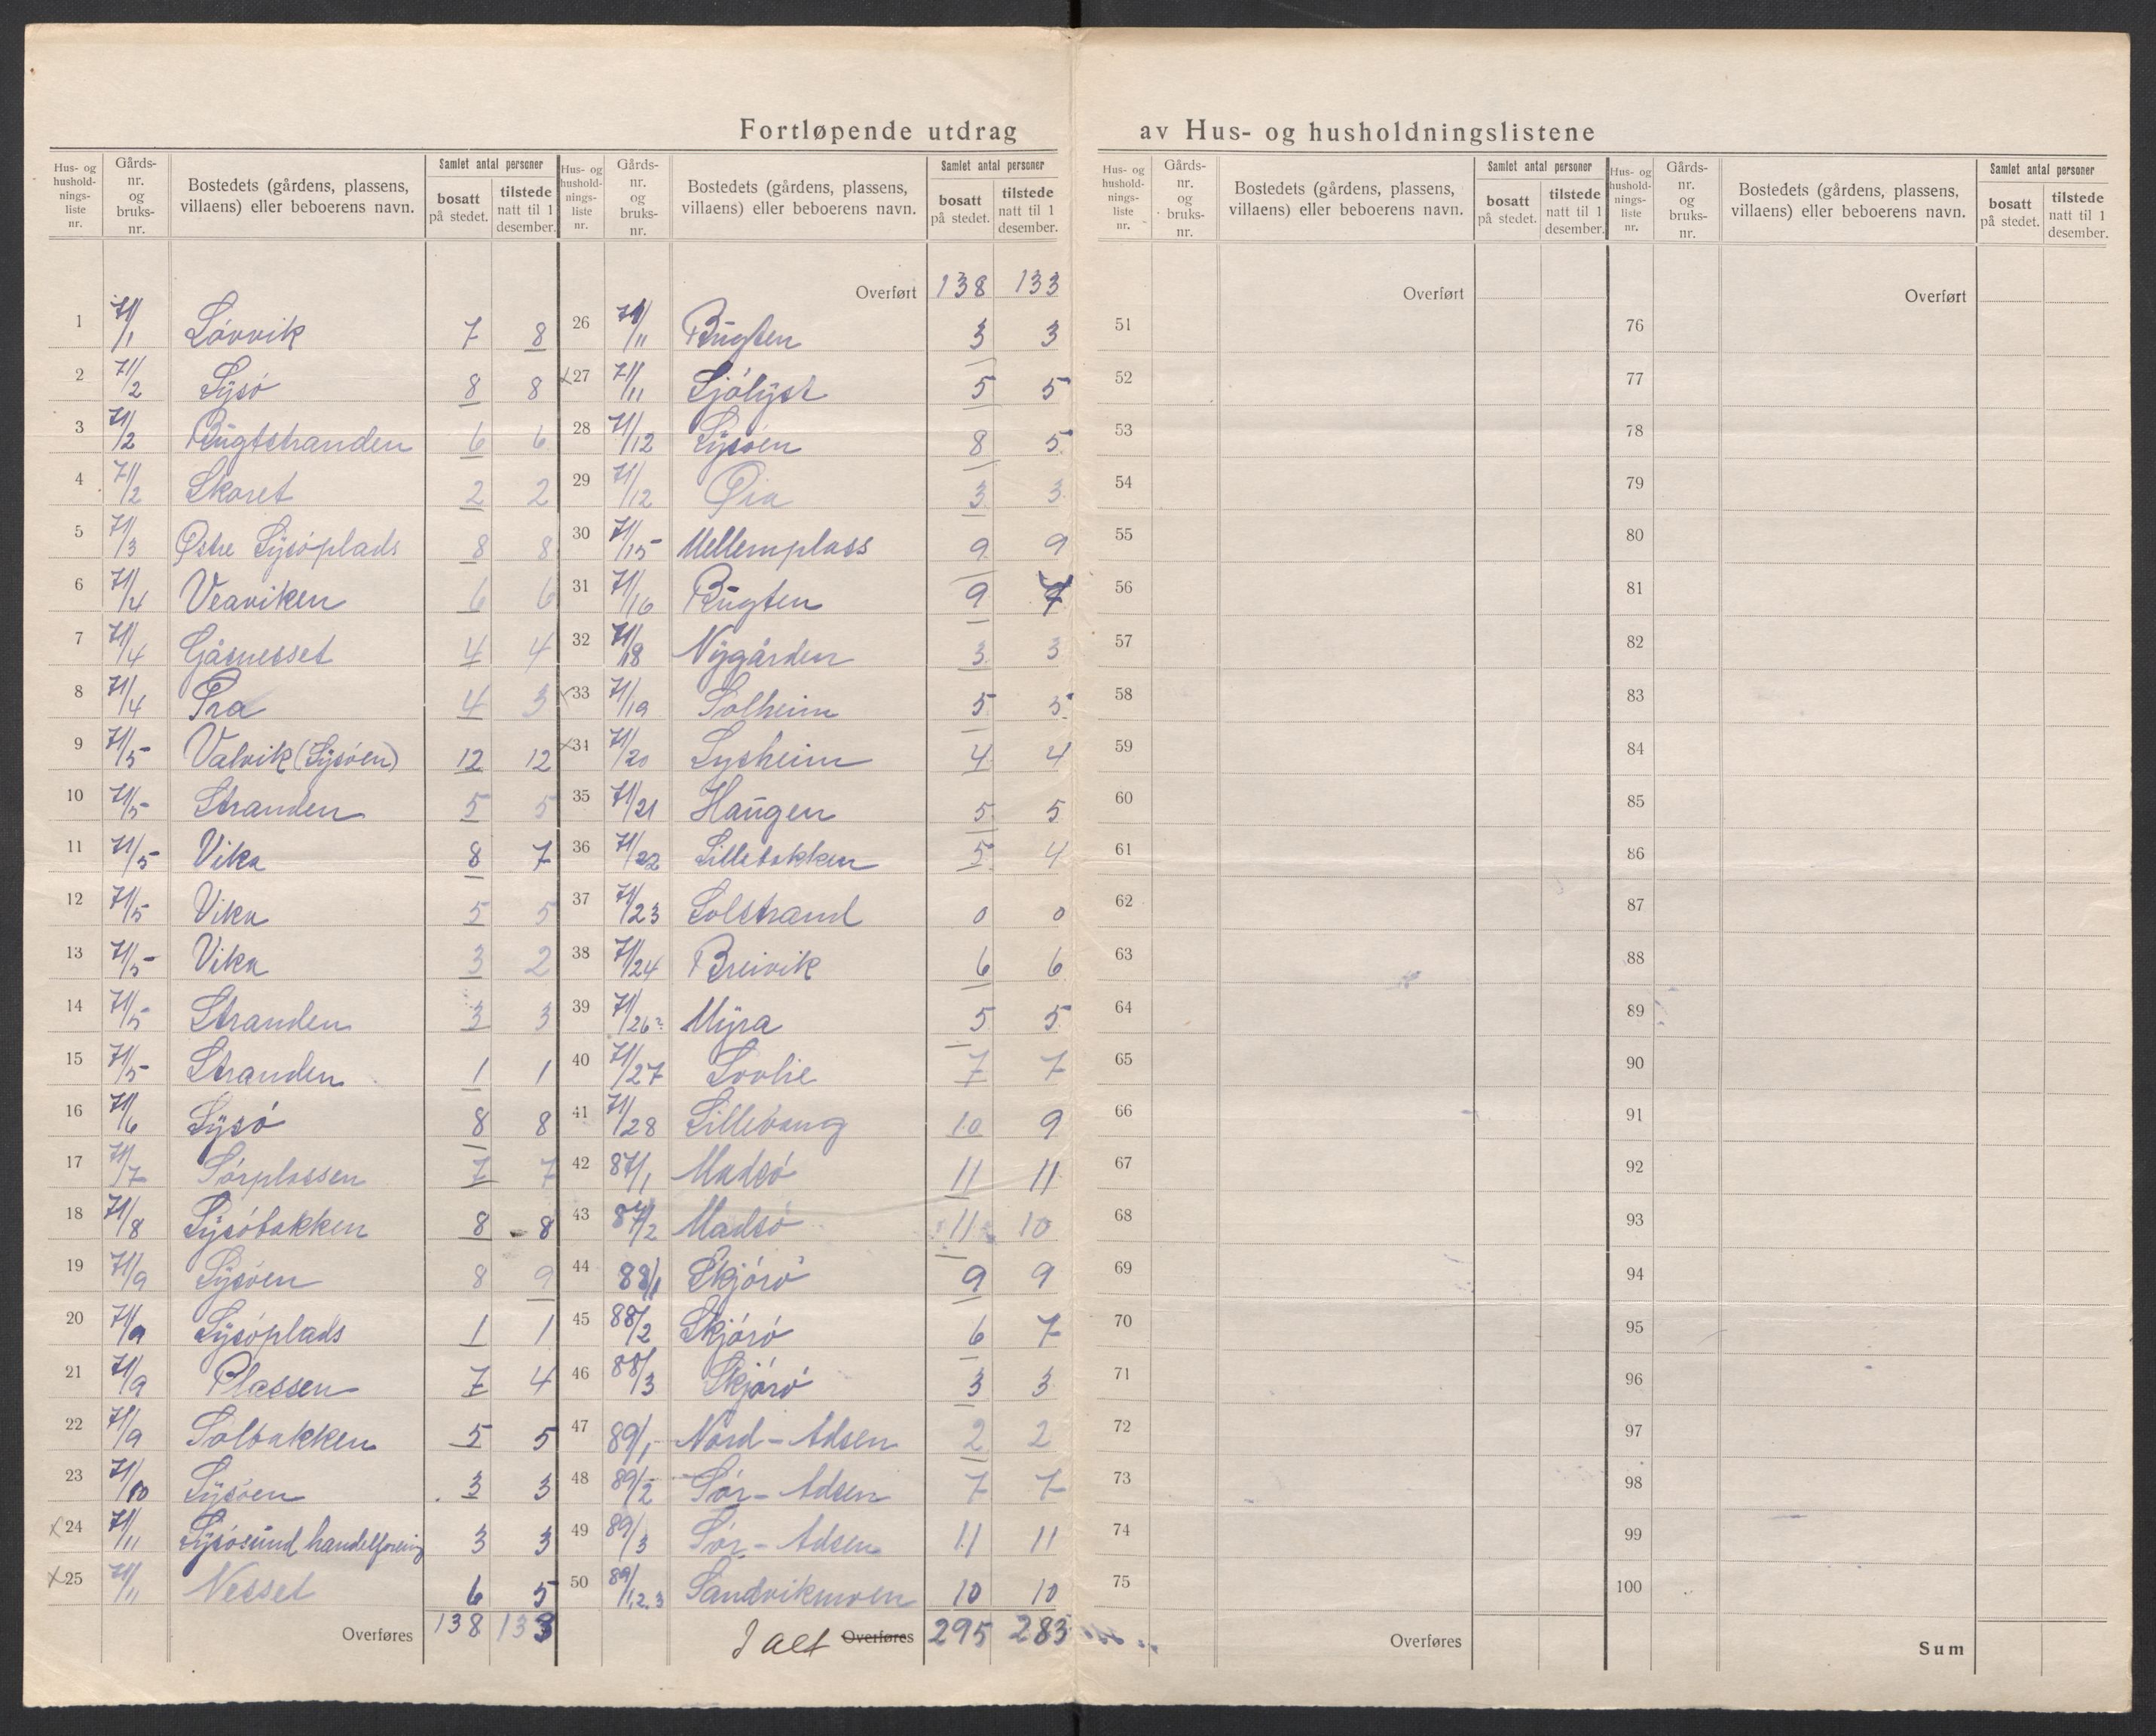 Fortløpende utdrag av Hus- og husholdningslistene
Hus- og husholdningsliste nr. Gårds-nr. og bruks-nr. Bostedets (gårdens, plassens, villaens) eller beboerens navn. Samlet antal personer bosatt på stedet. tilstede natt til 1 desember.
1 71/1 Lövvik 7 8
2 71/2 Lysö 8 8
3 71/2 Bugtstranden 6 6
4 71/2 Skaret 2 2
5 71/3 Østre Lysöplads 8 8
6 71/4 Veaviken 6 6
7 71/4 Gåsnesset 4 4
8 71/4 Pra 4 3
9 71/5 Valvik (Lysöen) 12 12
10 71/5 Stranden 5 5
11 71/5 Vika 8 7
12 71/5 Vika 5 5
13 71/5 Vika 3 2
14 71/5 Stranden 3 3
15 71/5 Stranden 1 1
16 71/6 Lysö 8 8
17 71/7 Sörplassen 7 7
18 71/8 Lysöbakken 8 8
19 71/9 Lysöen 8 9
20 71/9 Lysöplads 1 1
21 71/9 Plassen 7 4
22 71/9 Solbakken 5 5
23 71/10 Lysöen 3 3
x24 71/11 Lysösund handelforening 3 3
x25 71/11 Nesset 6 5
Overføres 138 133
Hus- og husholdningsliste nr. Gårds-nr. og bruks-nr. Bostedets (gårdens, plassens, villaens) eller beboerens navn. Samlet antal personer bosatt på stedet. tilstede natt til 1 desember.
Overført 138 133
26 71/11 Bugten 3 3
x27 71/11 Sjölyst 5 5
28 71/12 Lysöen 8 5
29 71/12 Øia 3 3
30 71/15 Mellemplass 9 9
31 71/16 Bugten 9 7
32 71/18 Nygården 3 3
x33 71/19 Solheim 5 5
x34 71/20 Lysheim 4 4
35 71/21 Haugen 5 5
36 71/22 Lillebakken 5 4
37 71/23 Solstrand 0 0
38 71/24 Breivik 6 6
39 71/26 Myra 5 5
40 71/27 Sovlie 7 7
41 71/28 Lillevang 10 9
42 87/1 Madsö 11 11
43 87/2 Madsö 11 10
44 88/1 Skjörö 9 9
45 88/2 Skjörö 6 7
46 88/3 Skjörö 3 3
47 89/1 Nord-Adsen 2 2
48 89/2 Sör-Adsen 7 7
49 89/3 Sör-Adsen 11 11
50 89/1,2,3 Sandvikmoen 10 10
I alt Overføres 295 283
Hus- og husholdningsliste nr. Gårds-nr. og bruks-nr. Bostedets (gårdens, plassens, villaens) eller beboerens navn. Samlet antal personer bosatt på stedet. tilstede natt til 1 desember.
Overført
51
52
53
54
55
56
57
58
59
60
61
62
63
64
65
66
67
68
69
70
71
72
73
74
75
Overføres
Hus- og husholdningsliste nr. Gårds-nr. og bruks-nr. Bostedets (gårdens, plassens, villaens) eller beboerens navn. Samlet antal personer bosatt på stedet. tilstede natt til 1 desember.
Overført
76
77
78
79
80
81
82
83
84
85
86
87
88
89
90
91
92
93
94
95
96
97
98
99
100
Sum